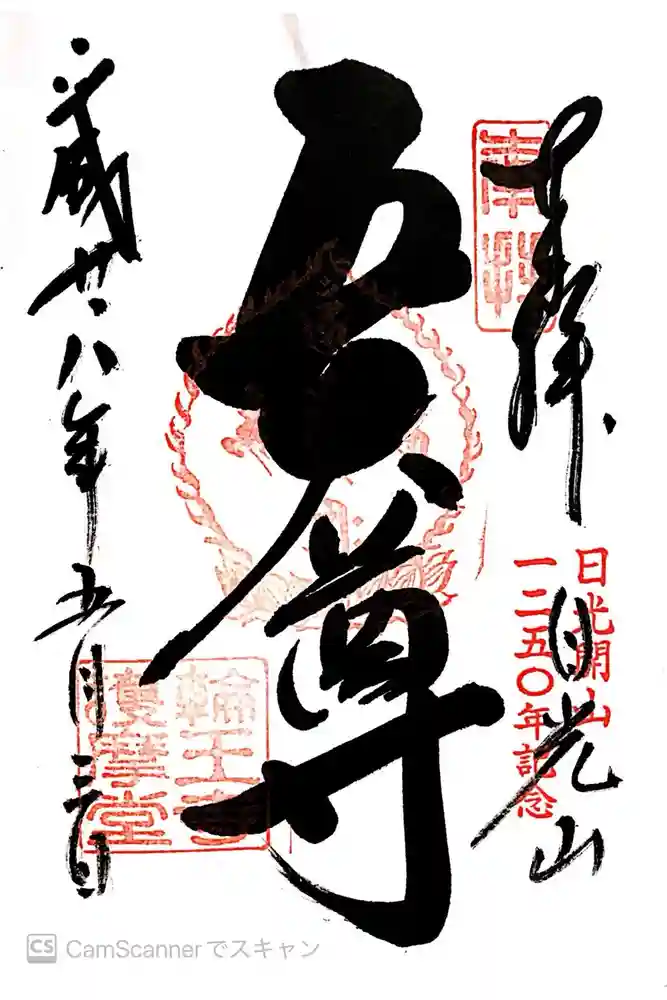 奉拝
日光山
日光開山
一二五〇年記念
五大尊
輪王寺
護摩堂
平成廿八年五月三日
CS CamScannerでスキャン